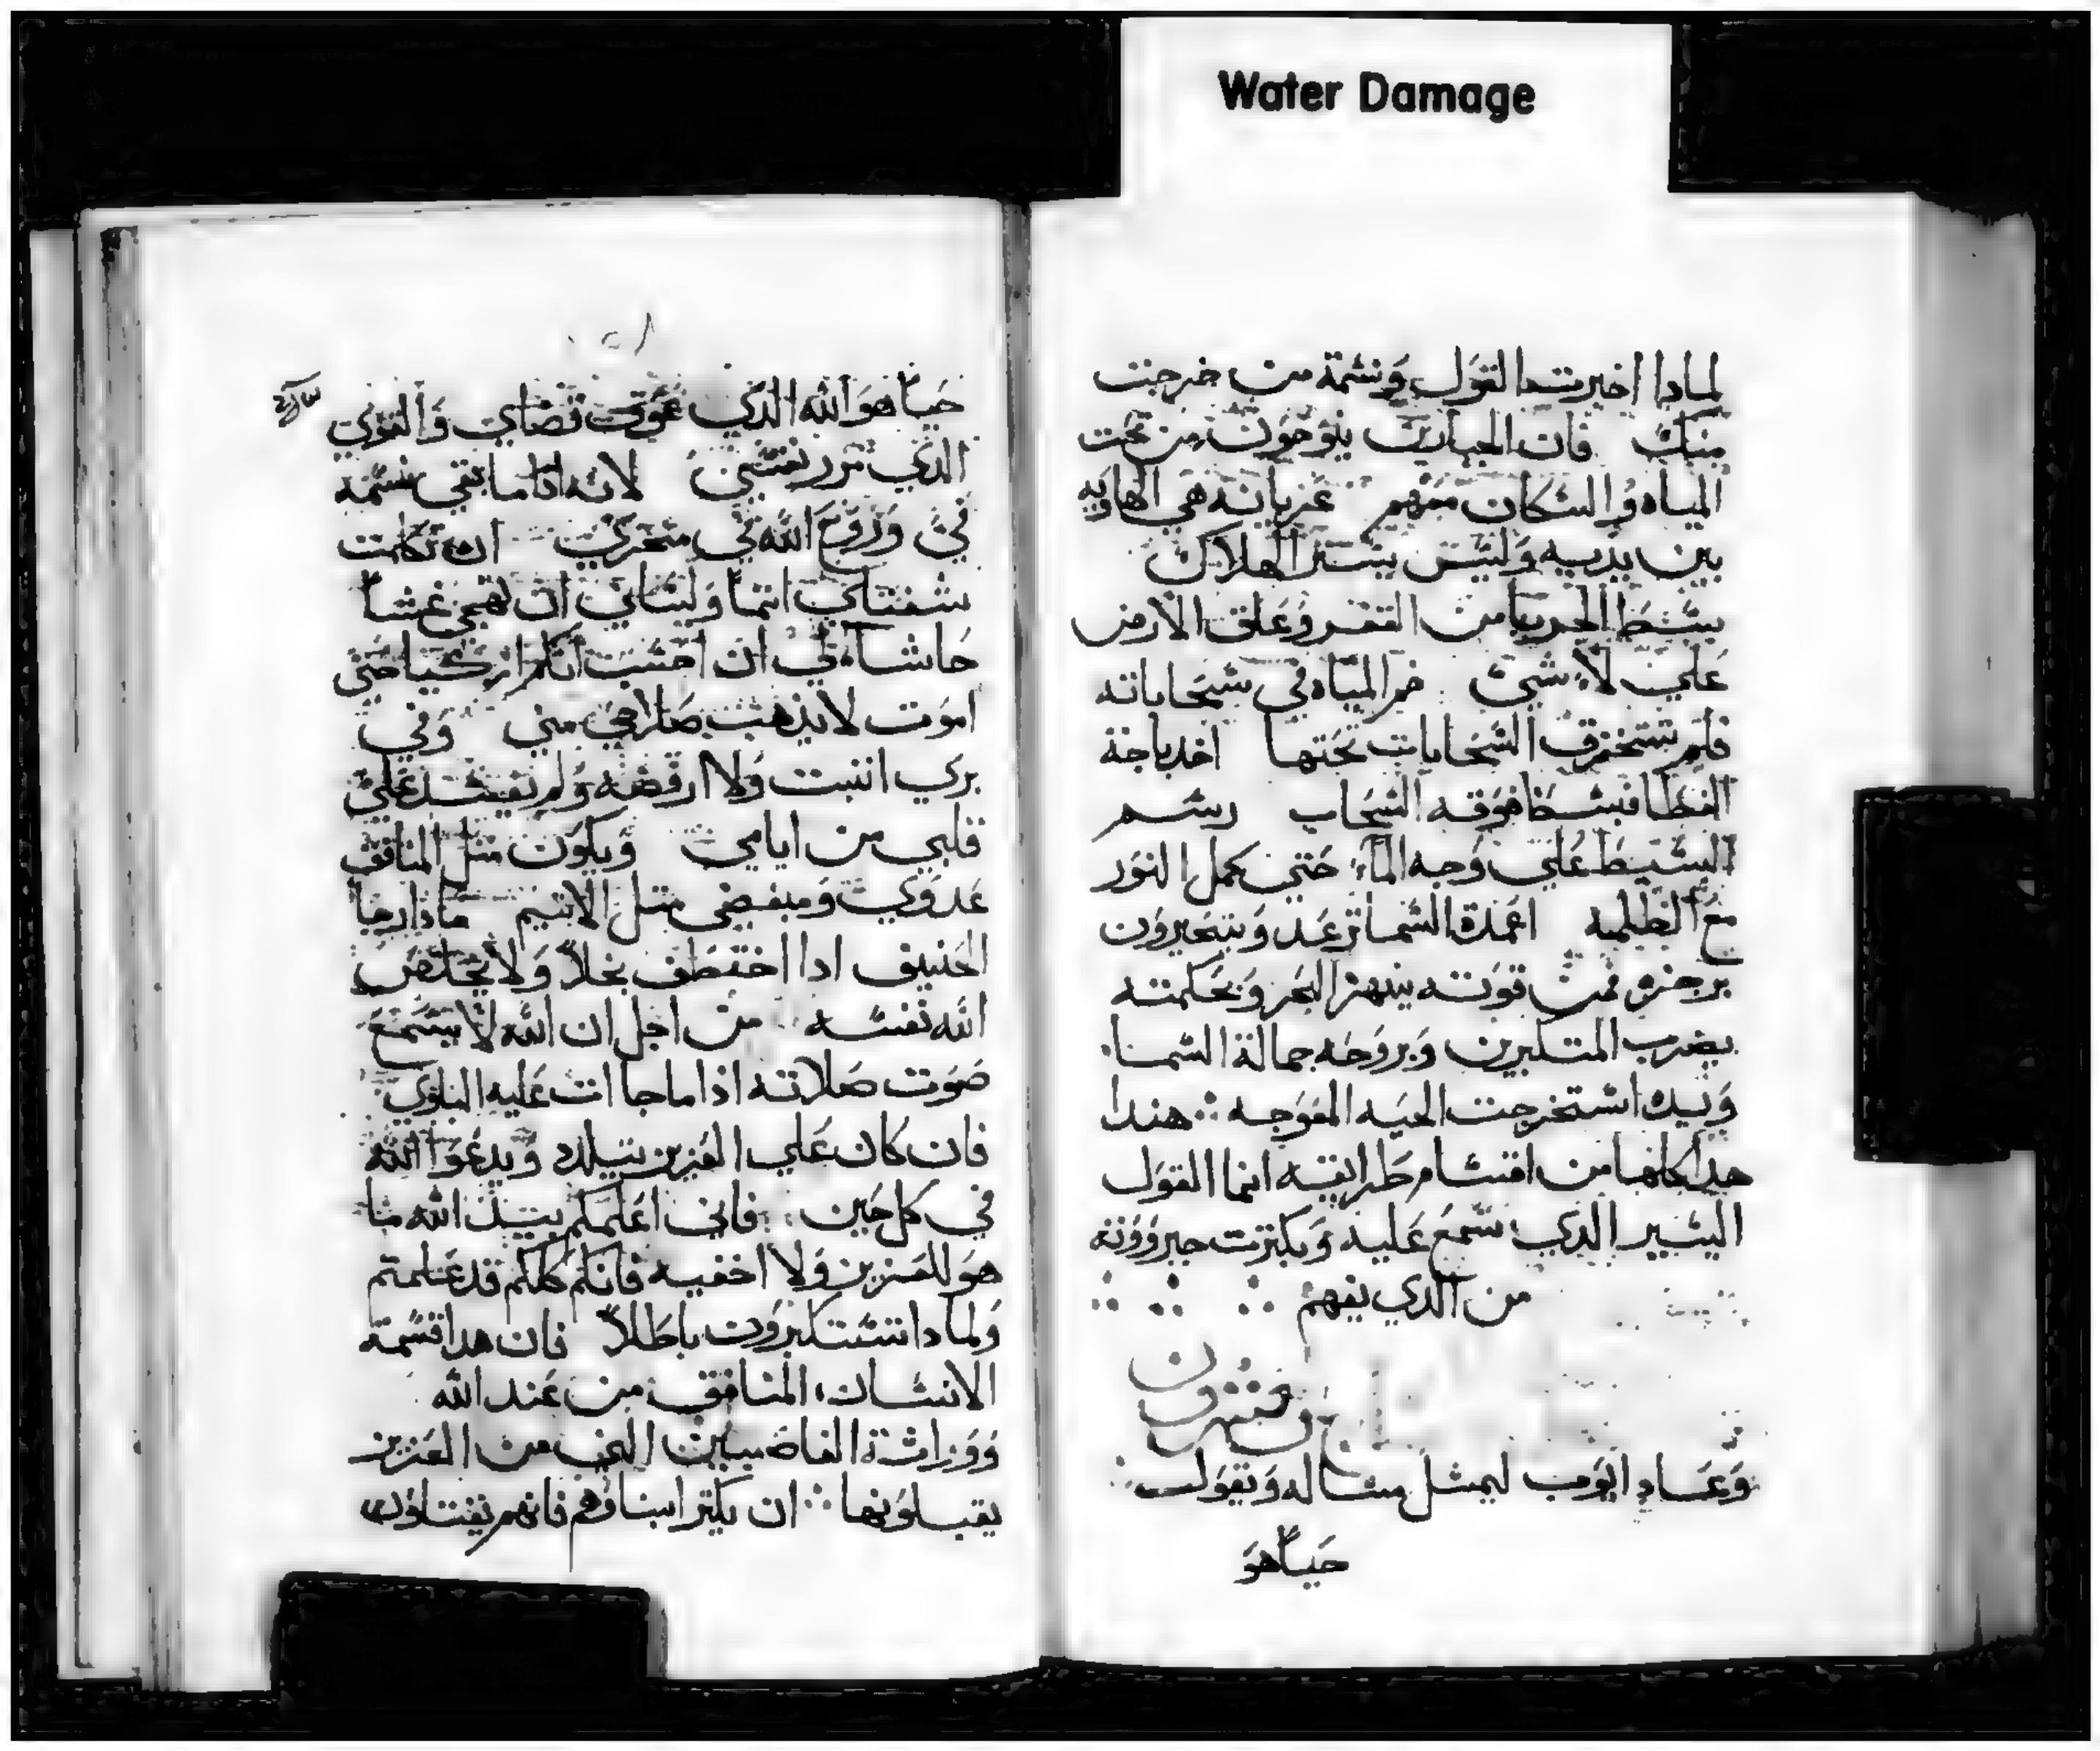 Water Damage
لمادا اخبرت القول ونشمة من خرجت
منك فان الجبابرة ينوحون من تحت
المياه والسكان معهم عريانه هي الهاويه
بين يديه وليس يستر الهلاك
يبسط الجربيا من القفر وعلق الارض
علي لا شي خمر المياه في سحاباته
فلم تستخرق السحابات تحتها اخد باجنة
الغطا فبسط فوقه السحاب رسم
البسيط علي وجه الماء حتي كمل النور
مع الظلمه اعمدة السما ترعد ويتحيرون
برجزه فمن قوته ينهز البحر وبحكمته
يضرب المتكبرين وبروحه جمالة السما
وبيده استخرجت الحيه المعوجه هندا
هدا كلها من اقسام طرايقه انما القول
اليسير الدي سمع عليه وبكترت جبرووته
من الدي يفهم
وعاد ايوب ليمثل مثاله ويقول
حياً هو
حياً هو الله الدي عوت قضاي والقوي
الدي مرر نفسي لانه ادا ما بقي نسمة
في وروح الله في منخري ان تكلمت
شفتاي اثما ولساني ان لهج غشاً
حاشا لي ان احسب انكم ازكيا حتي
اموت لا يذهب صلاحي مني وفي
بري اثبت ولا ارفضه ولم يفسد علي
قلبي من ايامي ويكون مثل المنافق
عدوي ومبغضي مثل الاثيم ماذا رجا
الحنيف ادا اختطف بخلاً ولا يخلص
الله نفسه من اجل ان الله لا يسمع
صوت صلاته اذا ما جا ات عليه البلوي
فان كان علي العزيز يتلدد ويدعوا الله
في كل حين فاني اعلمكم بيد الله ما
هو للعزيز ولا اخفيه فانكم كلكم قد علمتم
ولما دا تستكبرون باطلاً فان هدا قسمة
الانسان المنافق من عند الله
ووراثة الغاصبين التي من العزيز
يقبلونها ان يكتر ابناوهم فانهم يقتلون